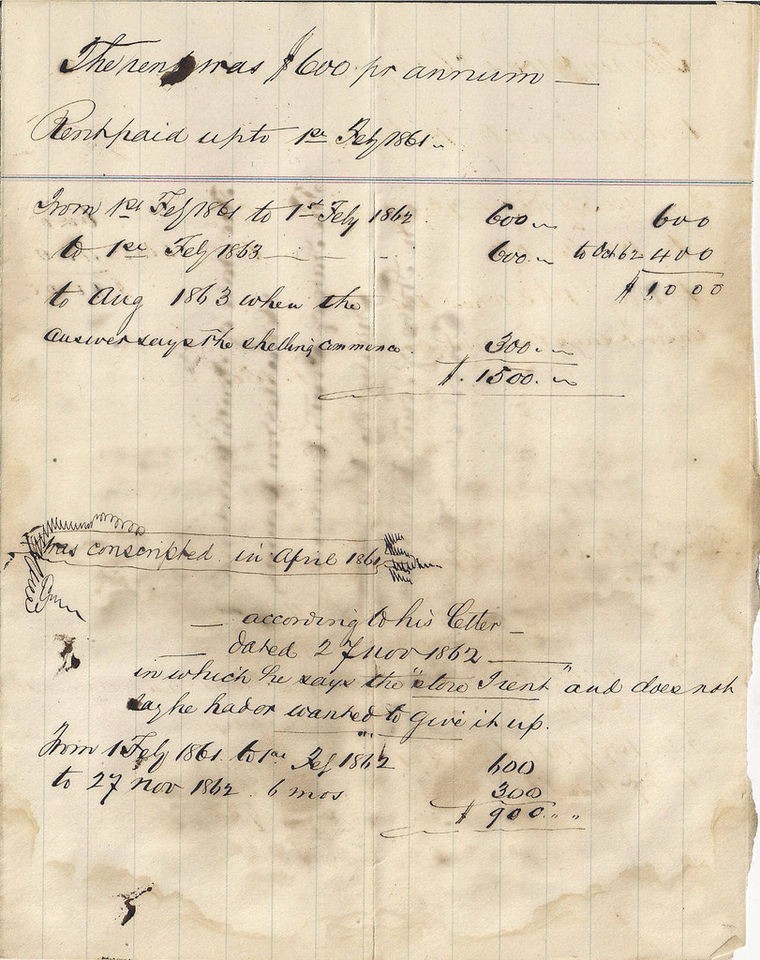 The rent was $600 pr annum —
Rent paid up to 1st Feby 1861 "
From 1st Feby 1861 to 1st Feby 1862 600 " 600
to 1st Feby 1863 - - - 600 " to Oct 62 400
$1000
to Aug 1863 when the
answer says the shelling commence 300 "
$. 1500. "
was conscripted in April 1861
— according to his letter —
— dated 27 Nov 1862 —
in which he says the "store I rent" and does not
say he had or wanted to give it up.
From 1 Feby 1861 to 1st Feby 1862 600
to 27 Nov 1862 6 mos 300
$ 900 " "